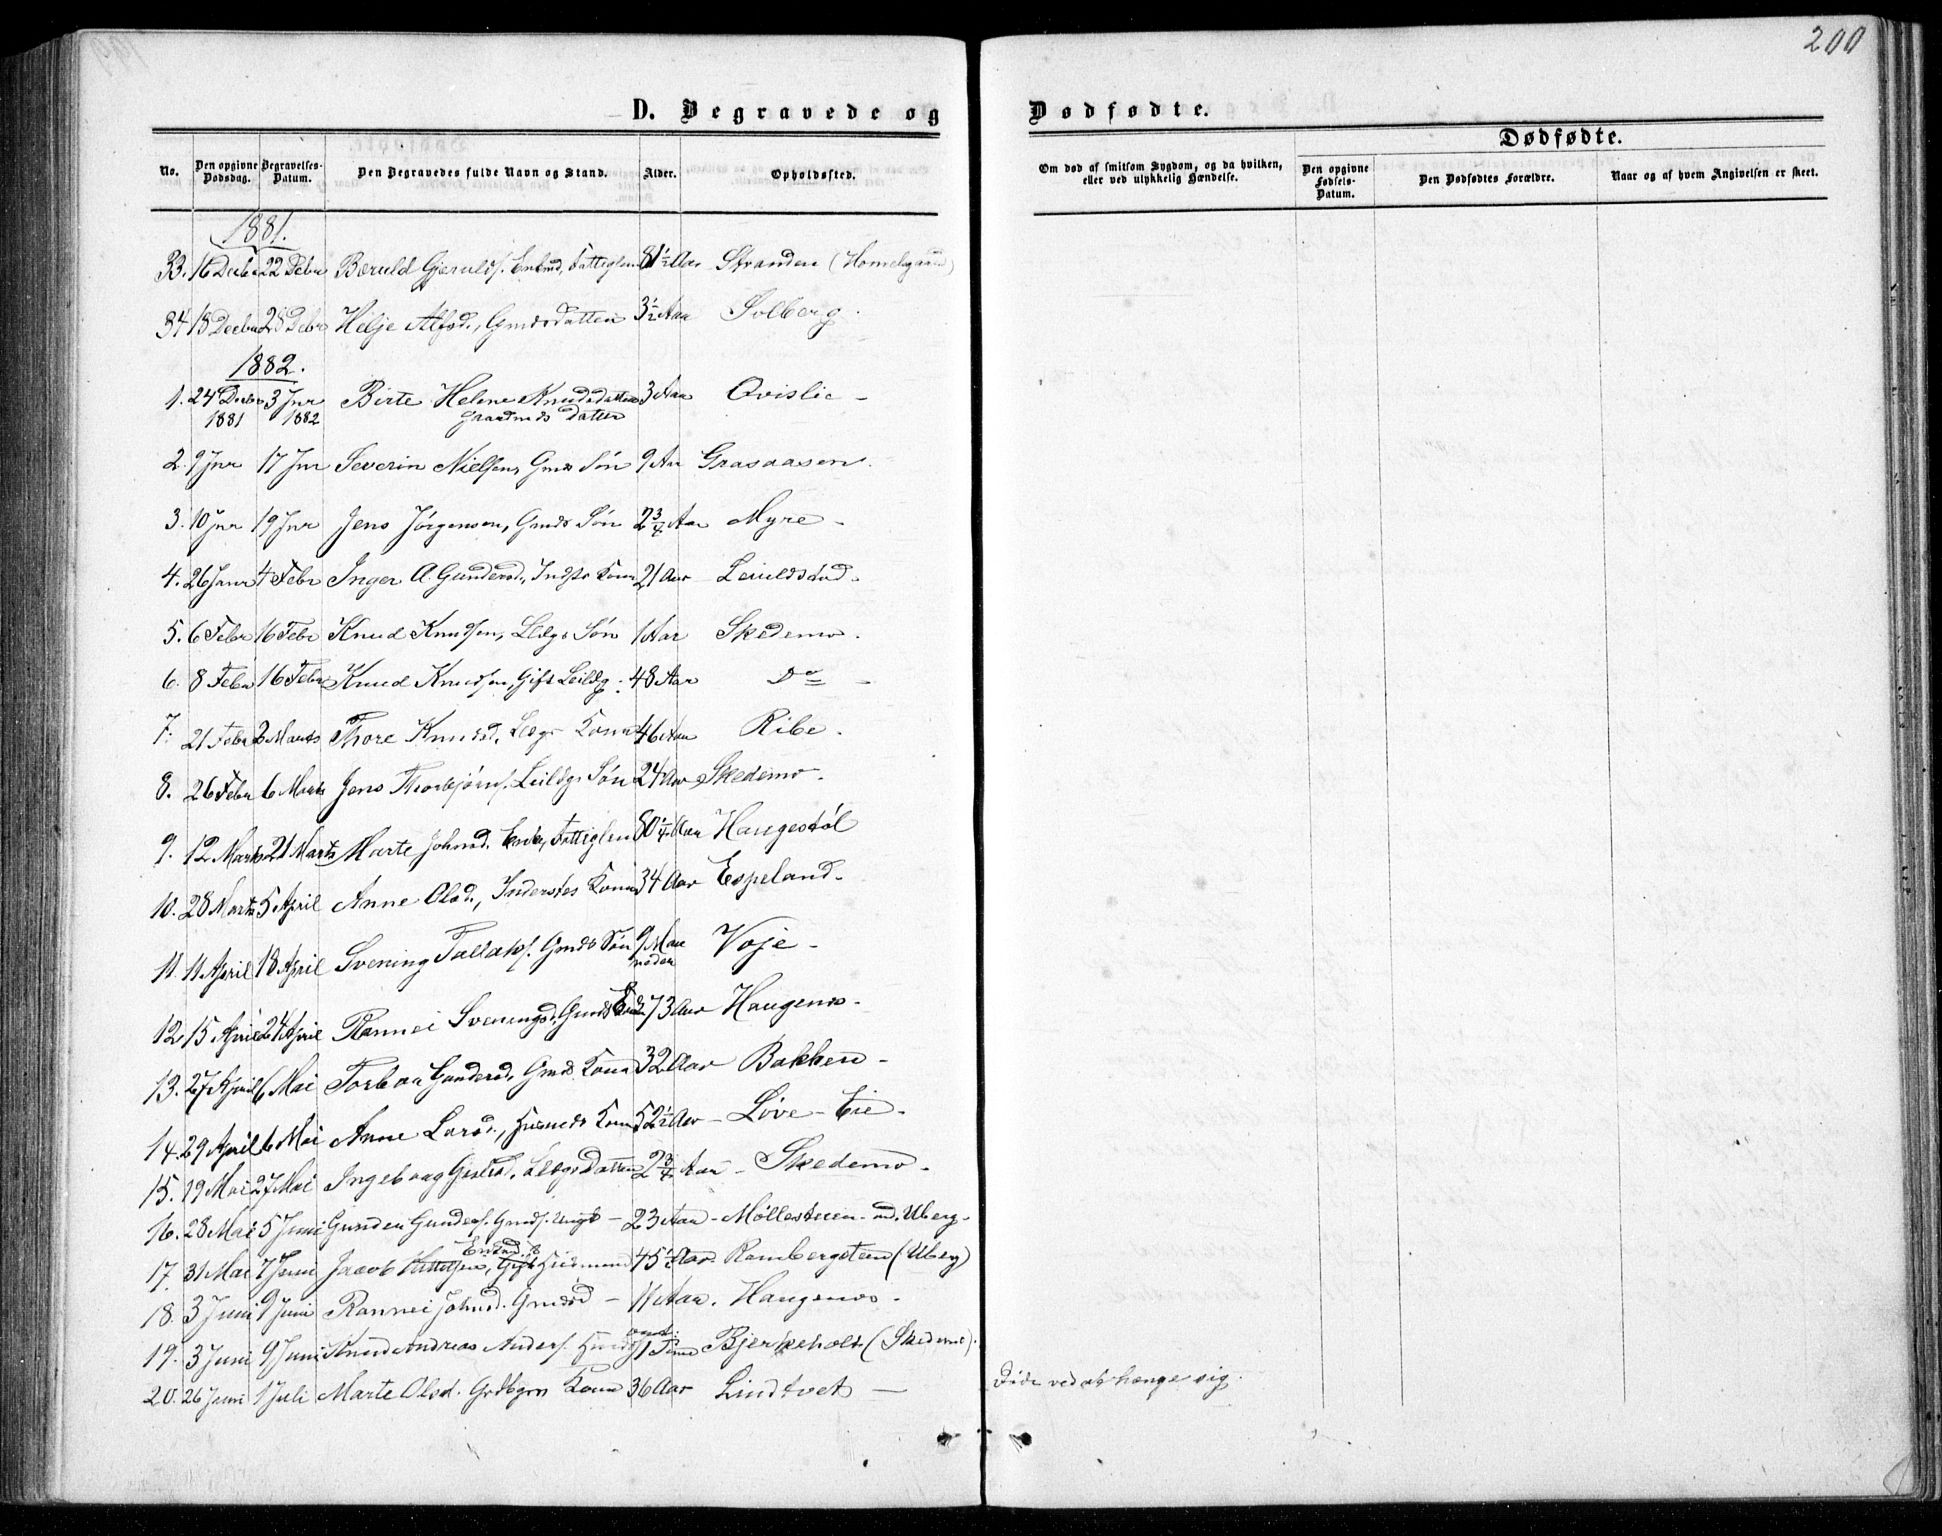 200
D. Begravede og Dødfødte.
Dødfødte.
No. Den opgivne Dødsdag. Begravelses-Datum. Den Begravedes fulde Navn og Stand. Alder. Opholdssted. Om død af smitsom Sygdom, og da hvilken, eller ved ulykkelig Hændelse. Den opgivne Fødsels-Datum. Den Dødfødtes Forældre. Naar og af hvem Angivelsen er skeet.
1881.
33. 16 Decbr 22 Debr Bæruld Gjerulds. Enkmd, Fattiglem 81½ Aar Stranden (Homelsgaard)
34 18 Decbr 28 Debr Helje Alfsd., Gmdsdatter 3½ Aar Solberg.
1882.
1. 24 Decbr 1881 3 Jnr 1882 Birte Helene Knudsdatter 3 Aar Qvislie -
Gaardmds Datter
2. 9 Jnr 17 Jnr Severin Nielsen, Gmds Søn 9 Aar Grasaasen.
3. 10 Jnr 19 Jnr Jens Jørgensen, Gmds Søn 2¾ Aar Myre -
4. 26 Janr 4 Febr Inger A. Gundersd., Indsts Kone 21 Aar Leiuldstad.
5. 6 Febr 16 Febr Knud Knudsen, Lldgs Søn 1 Aar Skedemo.
6. 8 Febr 16 Febr Knud Knudsen, Gift Leildg: 48 Aar Do -
7. 21 Febr 2 Marts Thore Knudsd, Lldgs Kone 46 Aar Ribe.
8. 26 Febr 6 Marts Jens Thorbjørns. Leildgs Søn 24 Aar Skedemo.
9. 12 Marts 21 Marts Marte Johnsd. Enke, Fattiglem 80¼ Aar Haugestøl
10. 28 Marts 5 April Anne Olsd., Inderstes Kone 34 Aar Espeland.
11. 11 April 18 April Svening Tallaks. Gmds Søn 9 Maaneder Voje -
12. 15 April 24 April Rannei Sveningsd, Gmds Enke 73 Aar Haugemo.
13. 27 April 6 Mai Torbor Gundersd, Gmds Kone 32 Aar Bakken -
14. 29 April 6 Mai Anne Larsd., Husmds Kone 52½ Aar - Løve - Eie.
15. 19 Mai 27 Mai Ingeborg Lldgs Datter 2¾ Aar - Skedemo.
16. 28 Mai 5 Juni Gunder Gunders. Gmds. Ungk - 23 Aar - Møllestuen - nd. Uberg.
17. 31 Mai 7 Juni Jacob Kittelsen, Enkmd. Gift Husmand 45½ Aar. Rambergsteen (Uberg)
18. 3 Juni 9 Juni Rannei Johnsd. Gmdsd - 11 Aar. Haugemo.
19. 3 Juni 9 Juni Knud Andreas Anders. 1 Time Bjerkeholt (Skedemo).
20. 26 Juni 1 Juli Marte Olsd. Grdbgrs Kone 36 Aar Lindtvet - Døde ved at hænge sig.